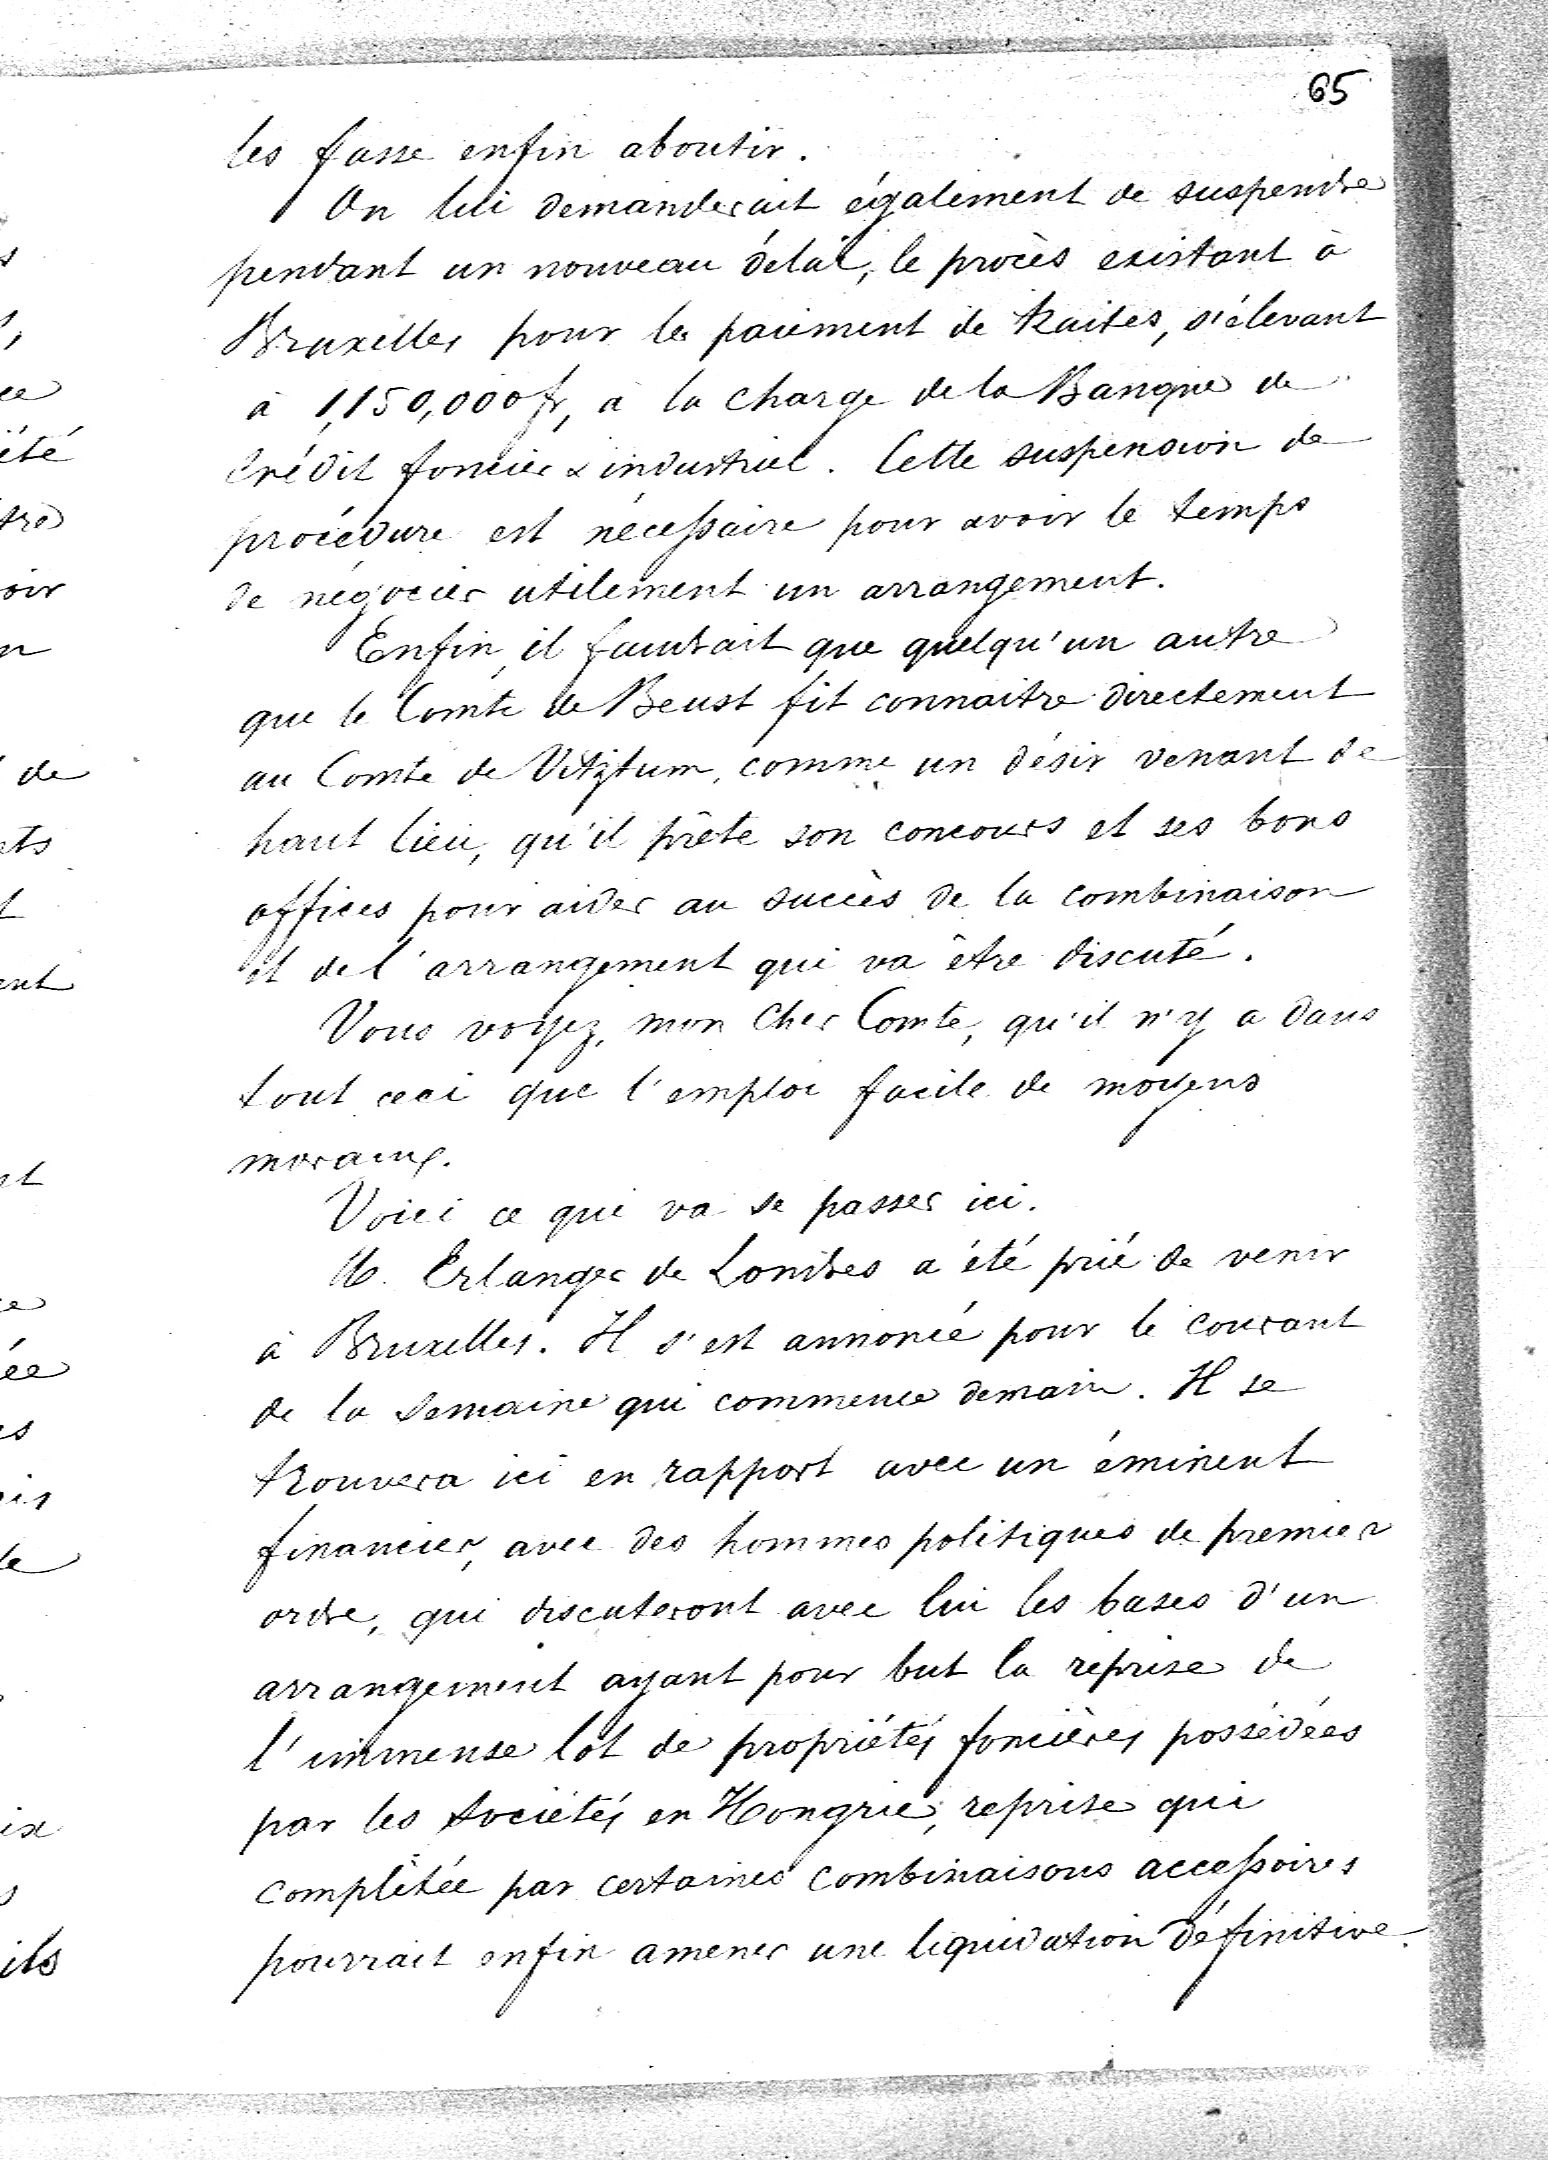 65
les fasse enfin aboutir.
On lui demanderait également de suspendre
pendant un nouveau délai, le procès existant à
Bruxelles pour le paiement de traites, s'élevant
à 1,150,000 fr, à la charge de la Banque de
Crédit foncier & industriel. Cette suspension de
procédure est nécessaire pour avoir le temps
de négocier utilement un arrangement.
Enfin, il faudrait que quelqu'un autre
que le Comte de Beust fit connaitre directement
au Comte de Vitztum, comme un désir venant de
haut lieu, qu'il prête son concours et ses bons
offices pour aider au succès de la combinaison
et de l'arrangement qui va être discuté.
Vous voyez, mon Cher Comte, qu'il n'y a dans
tout ceci que l'emploi facile de moyens
moraux.
Voici ce qui va se passer ici.
M. Erlanger de Londres a été prié de venir
à Bruxelles. Il s'est annoncé pour le courant
de la semaine qui commence demain. Il se
trouvera ici en rapport avec un éminent
financier, avec des hommes politiques de premier
ordre, qui discuteront avec lui les bases d'un
arrangement ayant pour but la reprise de
l'immense lot de propriétés foncières possédées
par les Sociétés en Hongrie, reprise qui
complétée par certaines combinaisons accessoires
pourrait enfin amener une liquidation définitive.